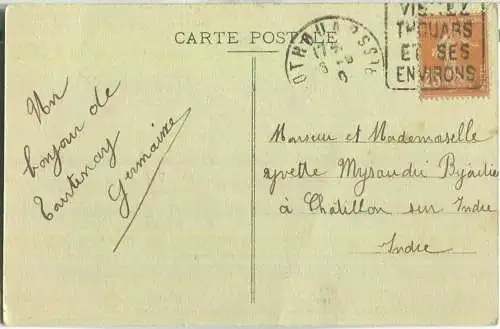 CARTE POSTALE
VISITEZ
THOUARS
ET SES
ENVIRONS
Un
bonjour de
Tautenay
Germaine
Monsieur et Mademoselle
yvette
à Châtillon sur Indre
Indre